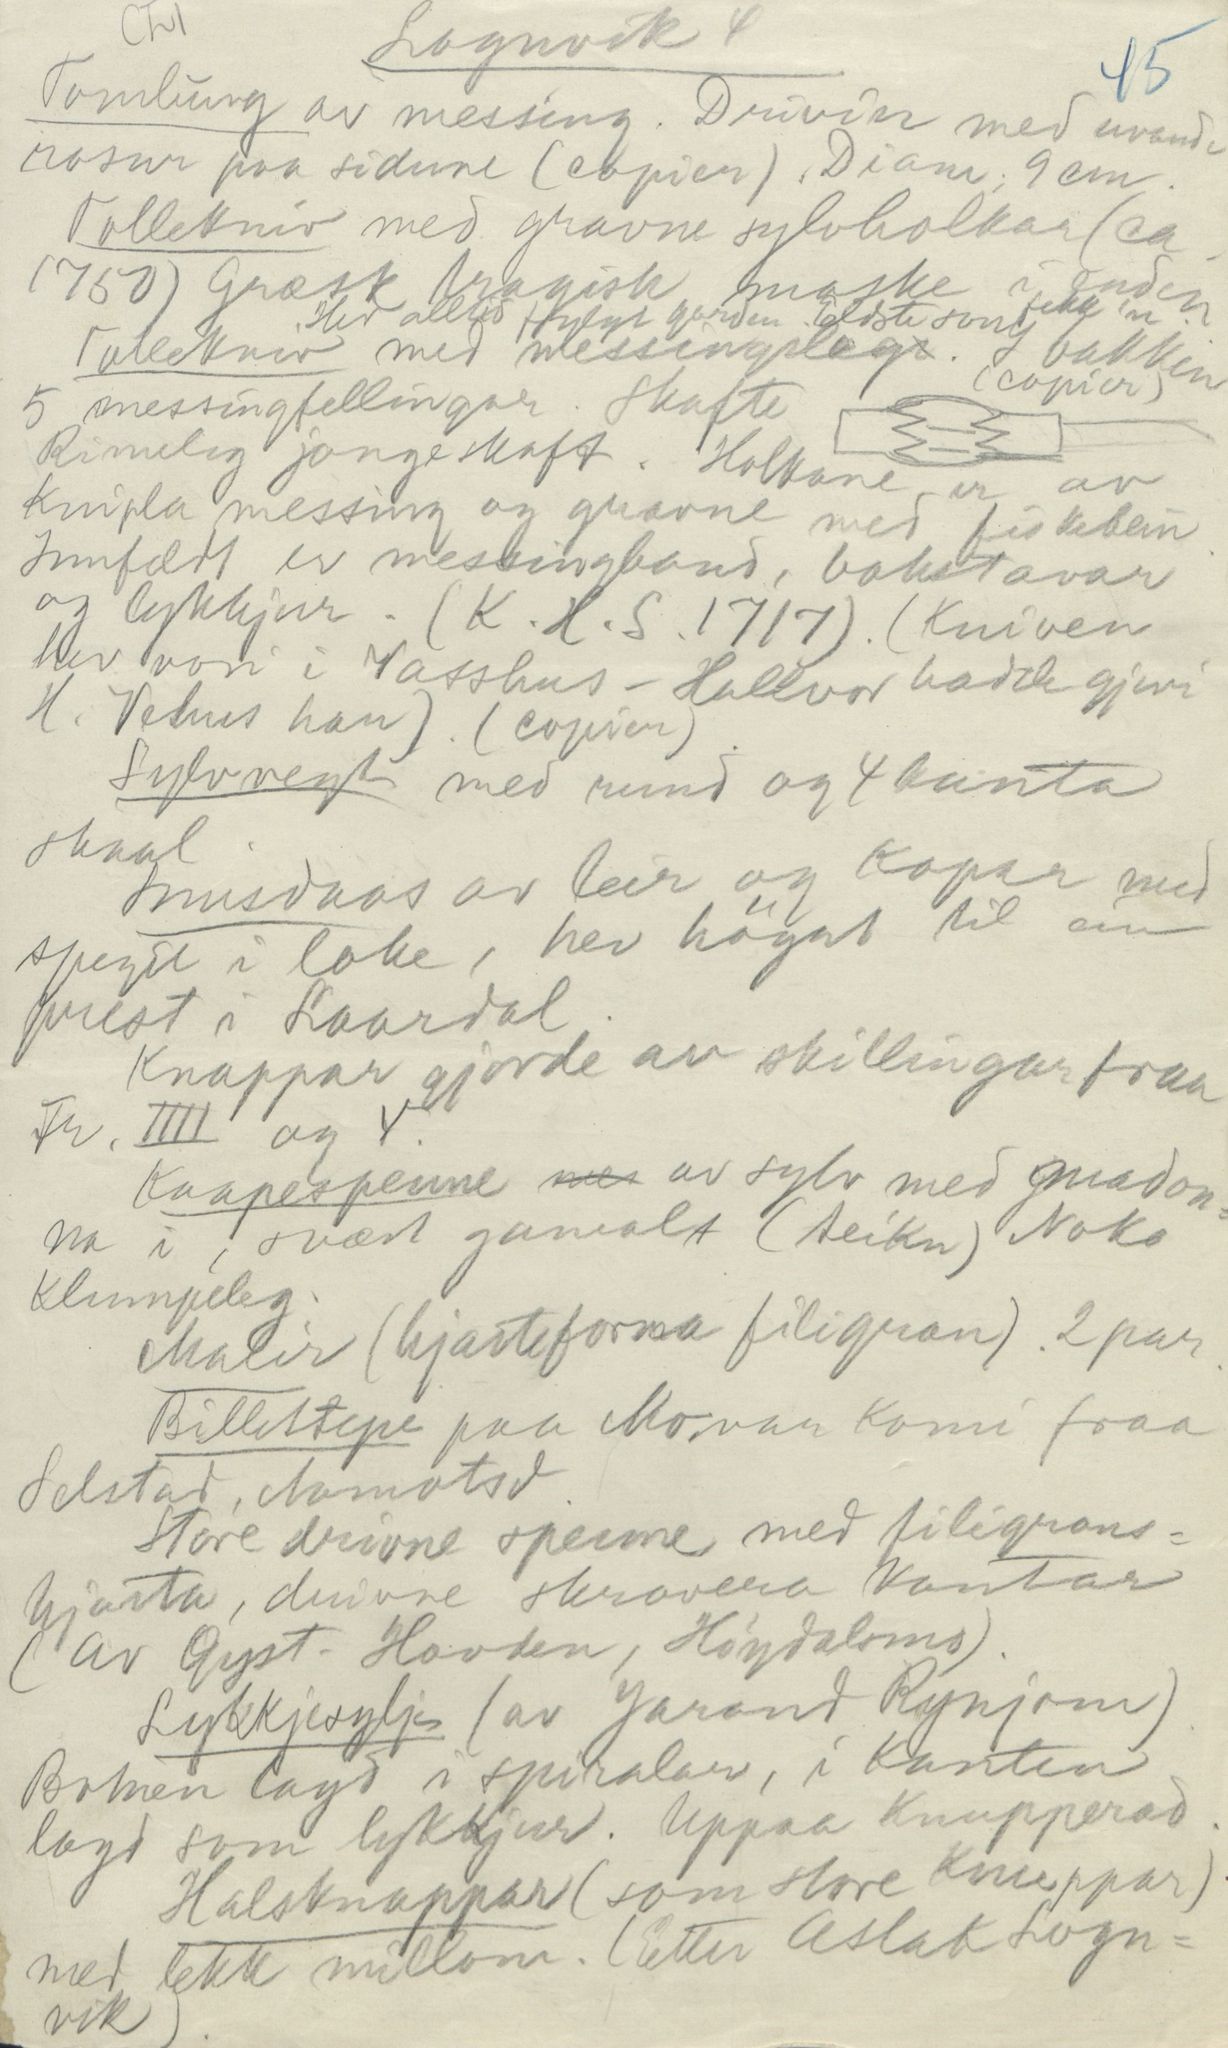 Lognvik 4
45
Tomlung av messing. Drivin med
rosur paa sidune (copier). Diam. 9 cm.
Tollekniv med gravne sylvholkar (ca
1750) Græsk tragisk maske i enden
Hev alltid fylgt garden. Eldste son fekk 'n.
Tollekniv med messingslegr. I bakken
(copier)
5 messingfellingar. Skafte
Rimeleg jangeskaft. Holkane er av
Knipla messing og gravne med fiskebein
Innfældt er messingband, bokstavar
og lykkjur. (K.H.S. 1717). (Kniven
hev vori i Vasshus - Hallvor hadde gjevi
H. Vehus han). (copier).
Sylvvegt med rund og 4 kanta
skaal.
Snusdaas av leir og Kopar med
spegil i loke, hev högrt til ein
prest i Laardal.
Knappar gjorde av skillingar fraa
Fr. IIII og V.
Kaapespenne av sylv med madon=
na i, svært gamalt (teikn) Noko
Klumpeleg.
Malir (hjarteforma filigran). 2 par.
Billettepe paa Mo, var komi fraa
Selstad, Aamotsd.
Store drivne spenne med filigrans=
hjarta, drivne skravera Kantar
(av Gyst. Hovden, Höydalsmo).
Lykkjesylje (av Jarand Rynjom).
Botnen lagd i spiralar, i Kanten
lagd som lykkjur. Uppaa Knupperad.
Halsknappar (som store Knuppar)
med lekk millom. (Etter Aslak Logn=
vik).